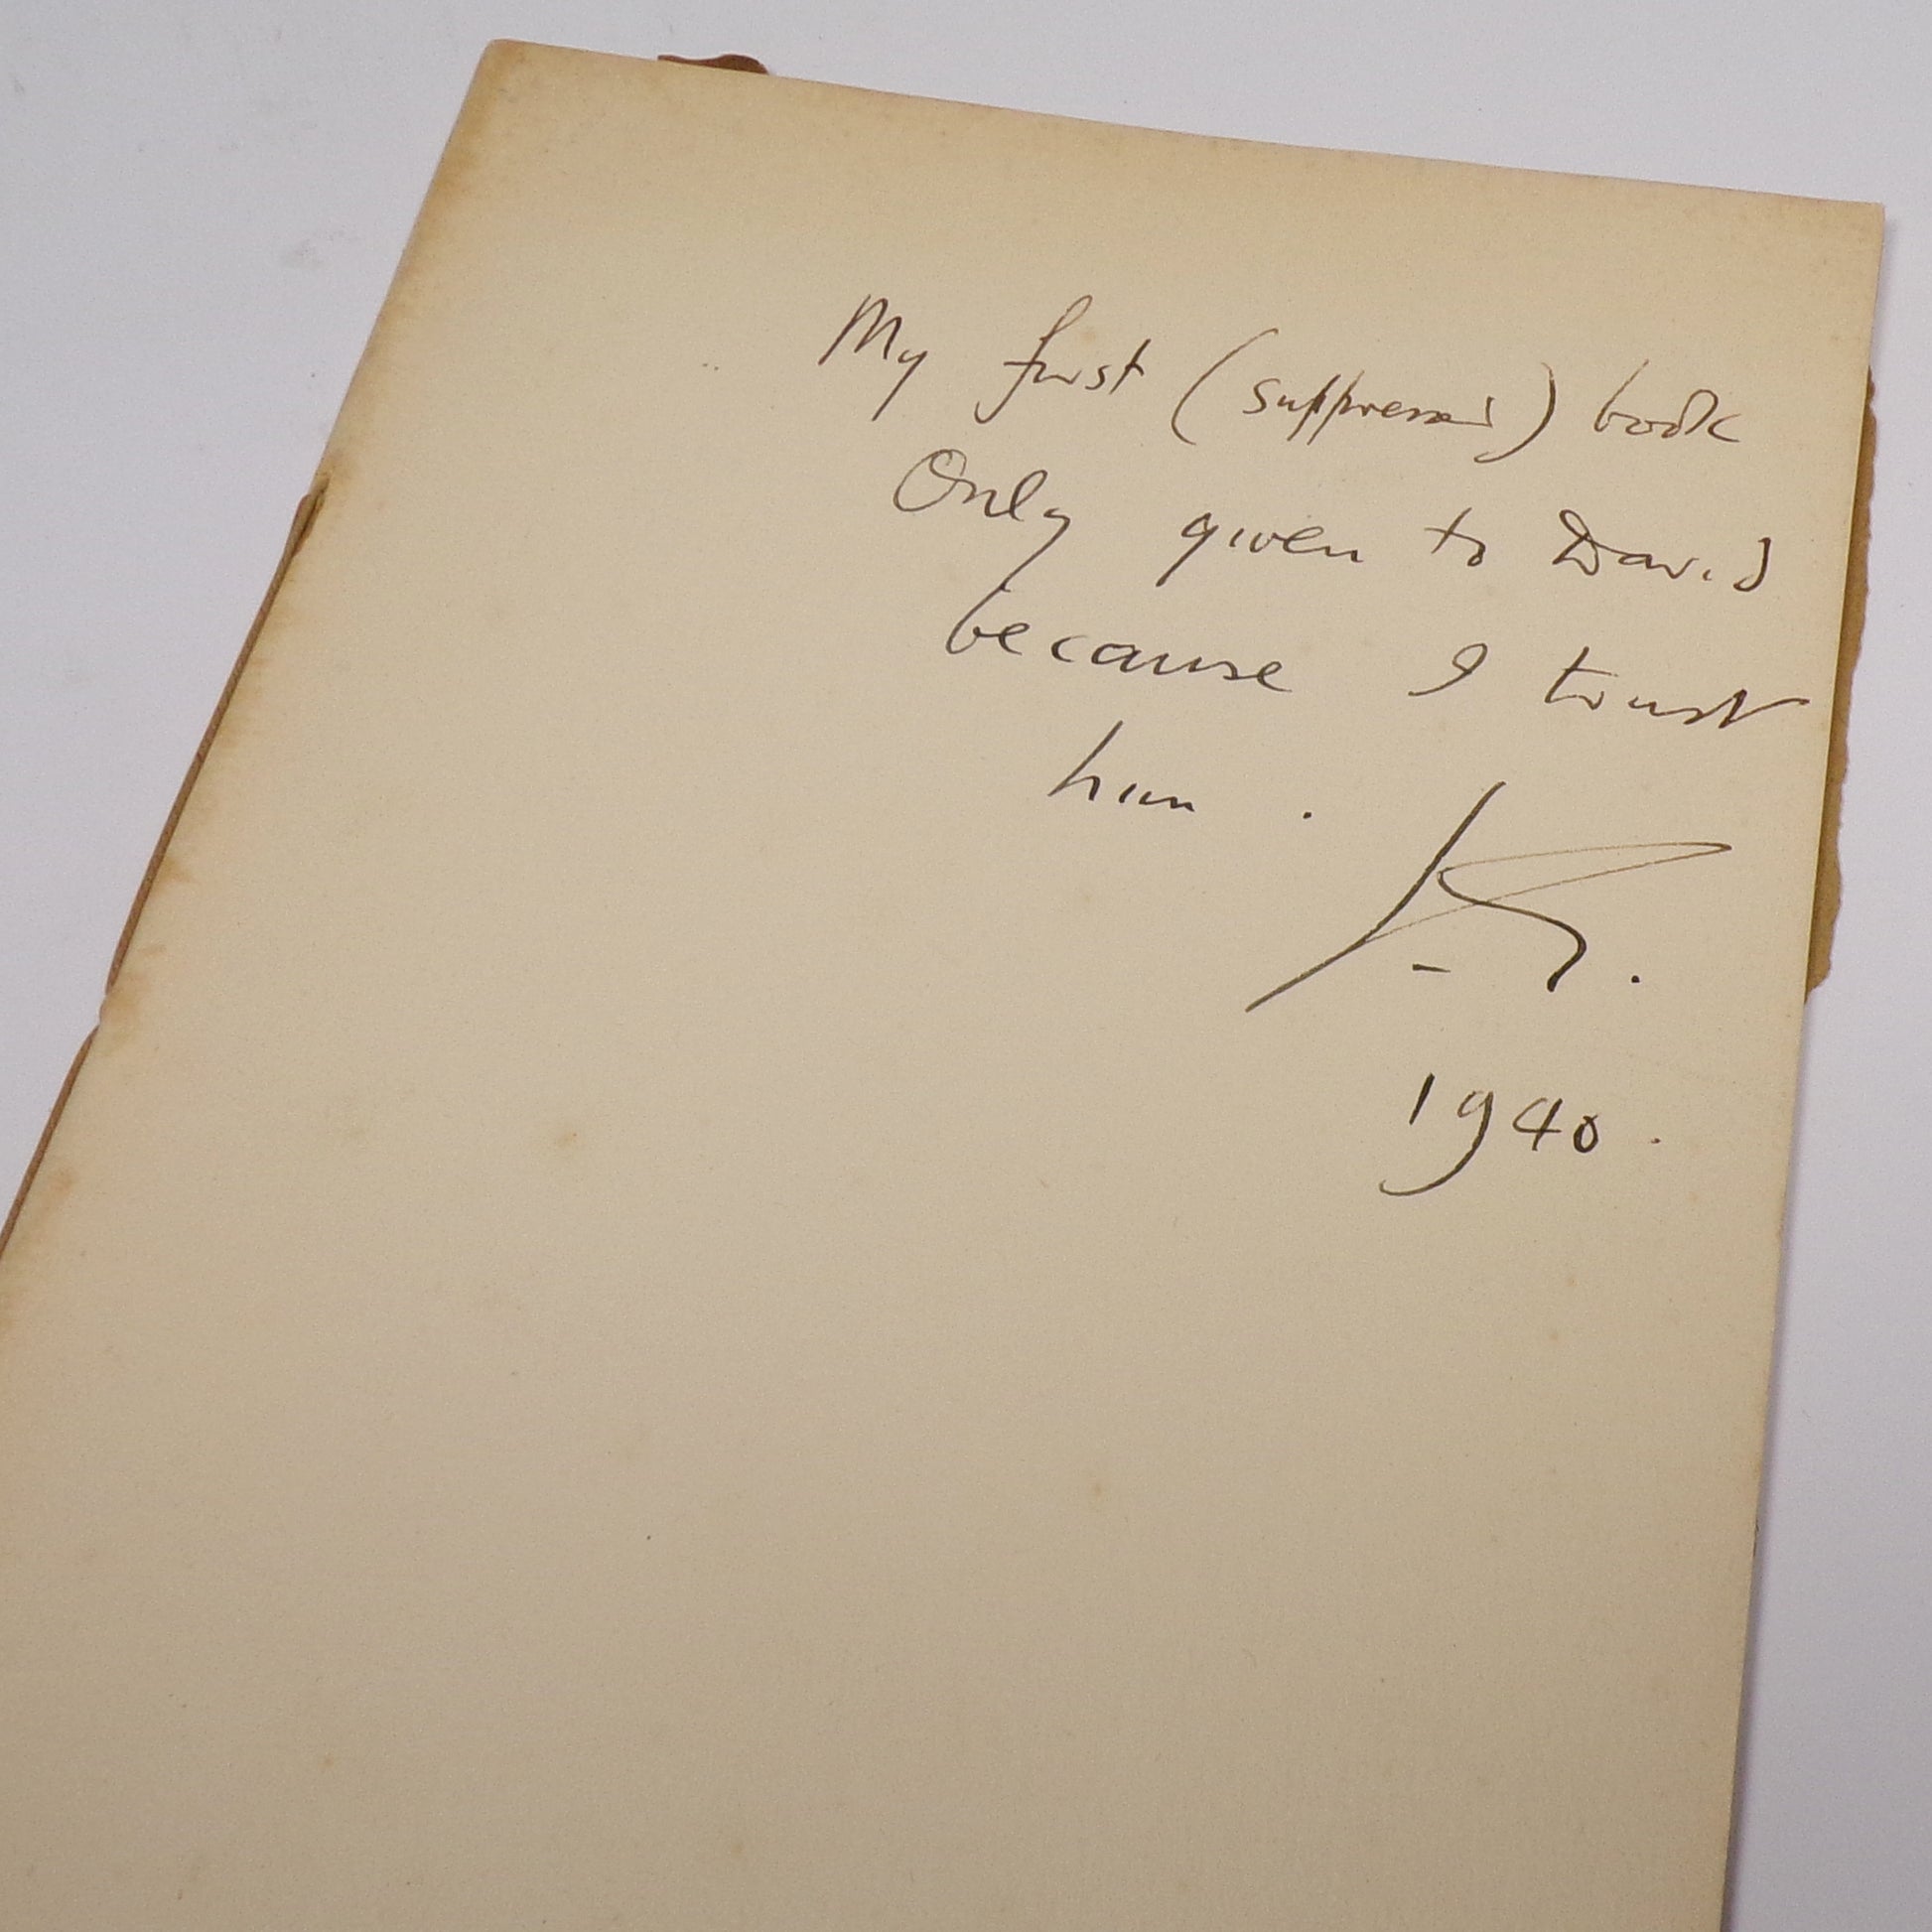 My first (suppressed) book
Only given to David
because I trust
him. K.
1940.